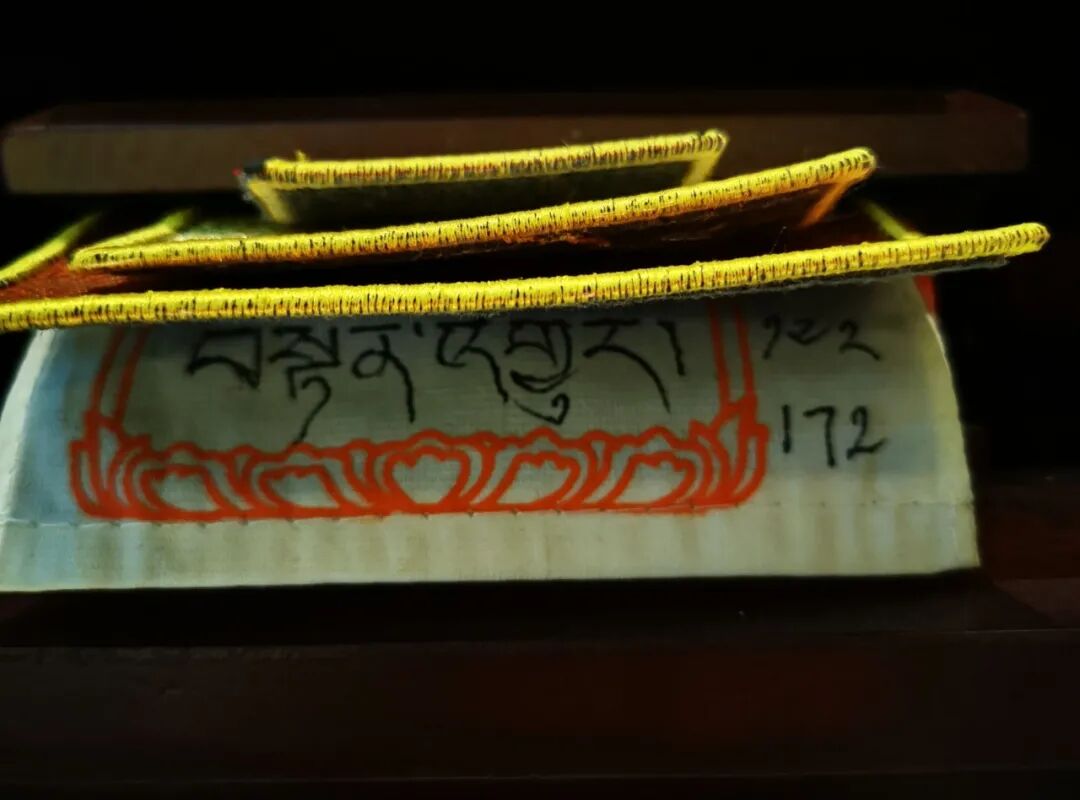 བསྟན་འགྱུར། ༡༧༢
172